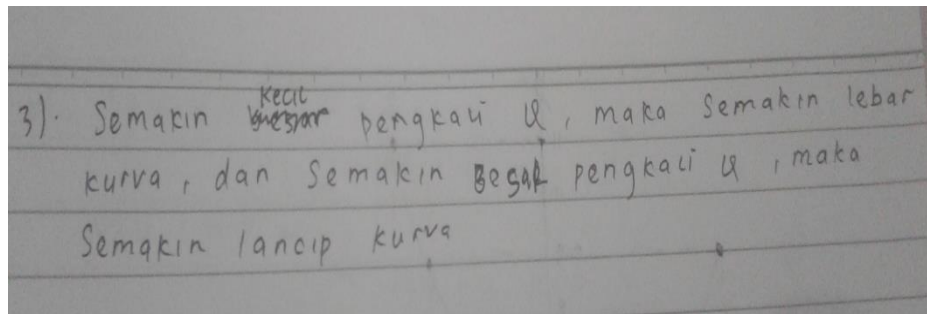 3). Semakin kecil pengkali x, maka semakin lebar
kurva, dan semakin Besar pengkali x, maka
Semakin lancip kurva